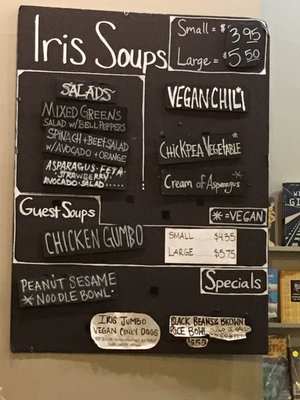 Iris Soups
Small = $3.95
Large = $5.50
SALADS
MIXED GREENS
SALAD W/ BELL PEPPERS
SPINACH + BEET SALAD
W/ AVOCADO + ORANGE
ASPARAGUS-FETA
STRAWBERRY
AVOCADO SALAD
VEGAN CHILI
*
CHICKPEA VEGETABLE
*
Cream of Asparagus
* = VEGAN
Guest Soups
CHICKEN GUMBO
SMALL $4.35
LARGE $5.75
Specials
PEANUT SESAME
* NOODLE BOWL
IRIS JUMBO
VEGAN CONEY DOGS
BLACK BEANS & BROWN
RICE BOWL